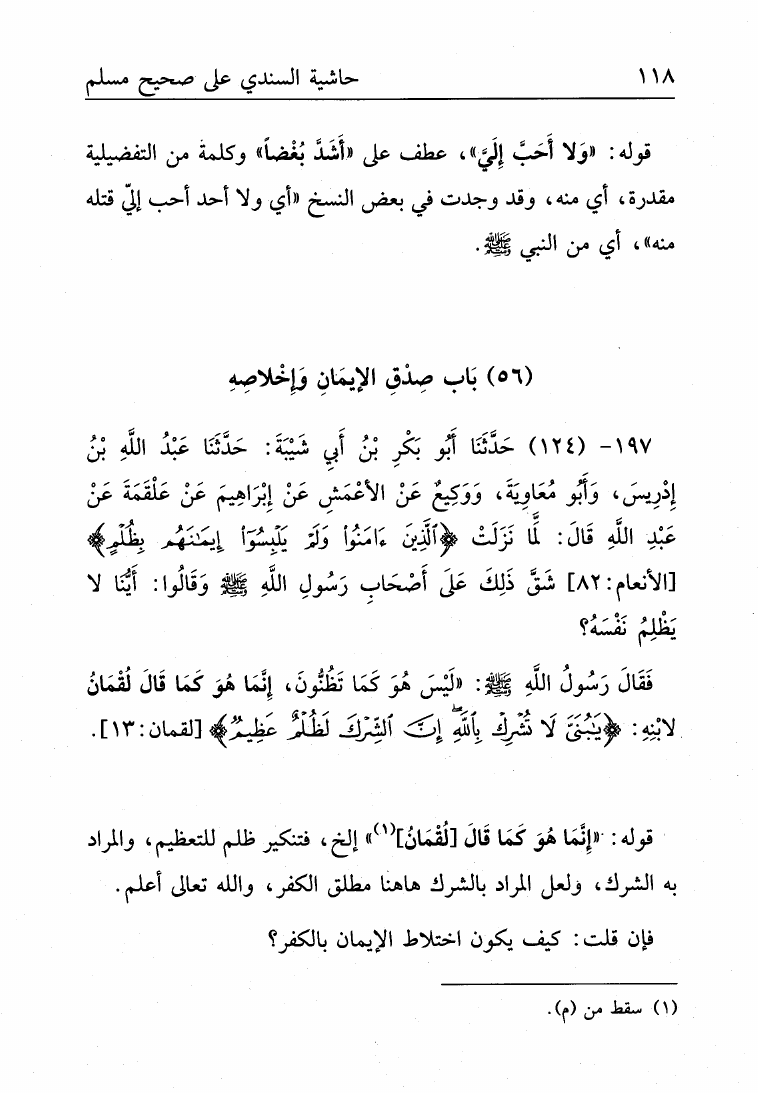 ١١٨ حاشية السندي على صحيح مسلم
قوله: «وَلا أَحَبَّ إِلَيَّ»، عطف على «أَشَدَّ بُغْضاً» وكلمة من التفضيلية
مقدرة، أي منه، وقد وجدت في بعض النسخ «أي ولا أحد أحب إليّ قتله
منه»، أي من النبي ﷺ.
(٥٦) بَاب صِدْقِ الإِيمَانِ وَإِخْلاصِهِ
١٩٧- (١٢٤) حَدَّثَنَا أَبُو بَكْرِ بْنُ أَبِي شَيْبَةَ: حَدَّثَنَا عَبْدُ اللَّهِ بْنُ
إِدْرِيسَ، وَأَبُو مُعَاوِيَةَ، وَوَكِيعٌ عَنْ الأَعْمَشِ عَنْ إِبْرَاهِيمَ عَنْ عَلْقَمَةَ عَنْ
عَبْدِ اللَّهِ قَالَ: لَمَّا نَزَلَتْ ﴿ٱلَّذِينَ ءَامَنُوا۟ وَلَمْ يَلْبِسُوٓا۟ إِيمَـٰنَهُم بِظُلْمٍ﴾
[الأنعام:٨٢] شَقَّ ذَلِكَ عَلَى أَصْحَابِ رَسُولِ اللَّهِ ﷺ وَقَالُوا: أَيُّنَا لا
يَظْلِمُ نَفْسَهُ؟
فَقَالَ رَسُولُ اللَّهِ ﷺ: «لَيْسَ هُوَ كَمَا تَظُنُّونَ، إِنَّمَا هُوَ كَمَا قَالَ لُقْمَانُ
لابْنِهِ: ﴿يَـٰبُنَىَّ لَا تُشْرِكْ بِٱللَّهِ ۖ إِنَّ ٱلشِّرْكَ لَظُلْمٌ عَظِيمٌ﴾ [لقمان:١٣].
قوله: «إِنَّمَا هُوَ كَمَا قَالَ [لُقْمَانُ](١)» إلخ، فتنكير ظلم للتعظيم، والمراد
به الشرك، ولعل المراد بالشرك هاهنا مطلق الكفر، والله تعالى أعلم.
فإن قلت: كيف يكون اختلاط الإيمان بالكفر؟
(١) سقط من (م).